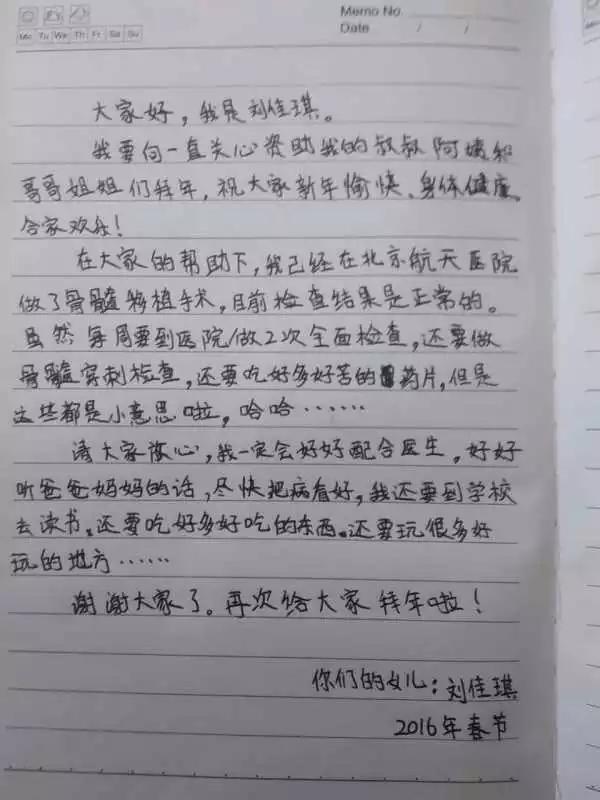 Mo Tu We Th Fr Sa Su
Memo No.
Date / /
大家好，我是刘佳琪。
我要向一直关心资助我的叔叔阿姨和
哥哥姐姐们拜年，祝大家新年愉快、身体健康、
合家欢乐！
在大家的帮助下，我已经在北京航天医院
做了骨髓移植手术，目前检查结果是正常的。
虽然每周要到医院做2次全面检查，还要做
骨髓穿刺检查，还要吃好多好苦的药片，但是
这些都是小意思啦，哈哈……
请大家放心，我一定会好好配合医生，好好
听爸爸妈妈的话，尽快把病看好，我还要到学校
去读书。还要吃好多好吃的东西。还要玩很多好
玩的地方……
谢谢大家了。再次给大家拜年啦！
你们的女儿：刘佳琪
2016年春节